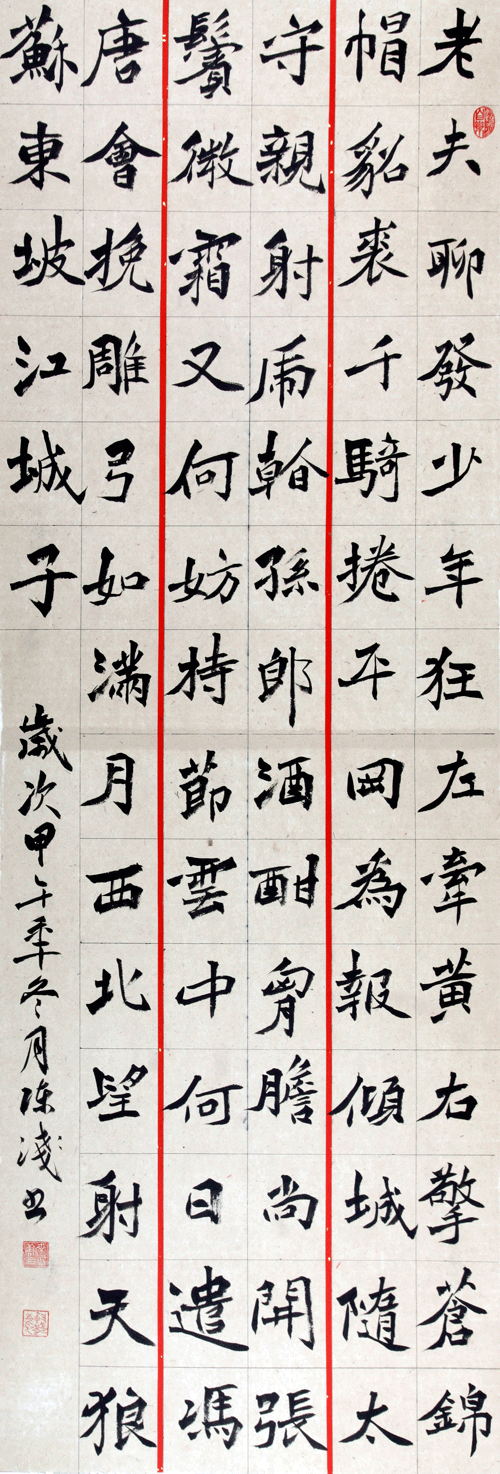 老夫聊發少年狂左牽黃右擎蒼錦
帽貂裘千騎捲平岡為報傾城隨太
守親射虎看孫郎酒酣胷膽尚開張
鬢微霜又何妨持節雲中何日遣馮
唐會挽雕弓如滿月西北望射天狼
蘇東坡江城子
歲次甲午年冬月陳淺书